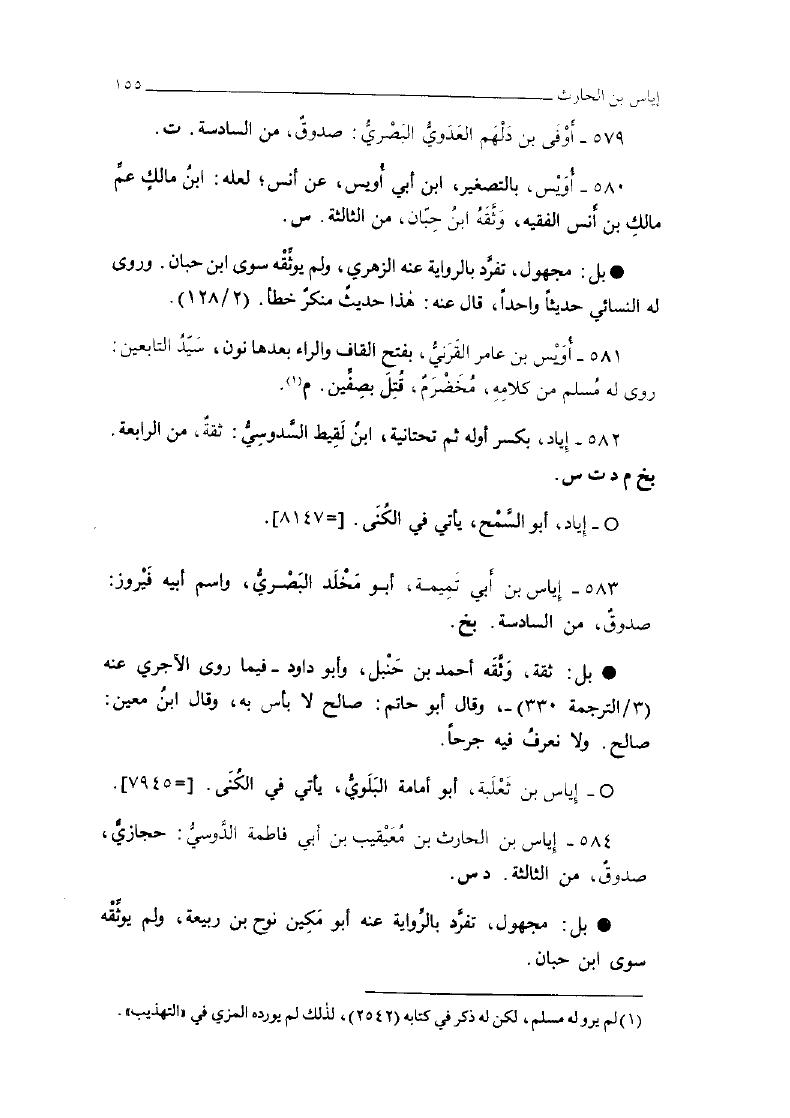 إياس بن الحارث ــــــــــــــــــــــ ١٥٥
٥٧٩ ـ أَوْفَى بن دَلْهَم العَدَويُّ البَصْريُّ: صدوقٌ، من السادسة. ت.
٥٨٠ ـ أُوَيْس، بالتصغير، ابن أبي أُويس، عن أنس؛ لعله: ابنُ مالكٍ عمِّ
مالكِ بن أنس الفقيه، وَثَّقَهُ ابنُ حِبّان، من الثالثة. س.
● بل: مجهول، تفرَّد بالرواية عنه الزهري، ولم يوثِّقْه سوى ابن حبان. وروى
له النسائي حديثاً واحداً، قال عنه: هٰذا حديثٌ منكرٌ خطأ. (١٢٨/٢).
٥٨١ ـ أُوَيْس بن عامر القَرَنيُّ، بفتح القاف والراء بعدها نون، سَيّدُ التابعين:
روى له مُسلم من كلامِهِ، مُخَضْرَمٌ، قُتِلَ بصِفِّين. م(١).
٥٨٢ ـ إياد، بكسر أوله ثم تحتانية، ابنُ لَقِيط السَّدوسِيُّ: ثقةٌ، من الرابعة.
بخ م د ت س.
○ ـ إياد، أبو السَّمْح، يأتي في الكُنَى. [=٨١٤٧].
٥٨٣ ـ إياس بن أَبي تَمِيمة، أبو مَخْلَد البَصْريُّ، واسم أبيه فَيْروز:
صدوقٌ، من السادسة. بخ.
● بل: ثقة، وَثَّقَه أحمد بن حَنْبل، وأبو داود ـ فيما روى الآجري عنه
(٣/الترجمة ٣٣٠) ـ، وقال أبو حاتم: صالح لا بأس به، وقال ابنُ معين:
صالح. ولا نعرفُ فيه جرحاً.
○ ـ إياس بن ثَعْلَبة، أبو أمامة البَلَويُّ، يأتي في الكُنَى. [=٧٩٤٥].
٥٨٤ ـ إياس بن الحارث بن مُعَيْقيب بن أبي فاطمة الدَّوسيُّ: حجازيٌّ،
صدوقٌ، من الثالثة. د س.
● بل: مجهول، تفرَّد بالرِّواية عنه أبو مَكِين نوح بن ربيعة، ولم يوثِّقْه
سوى ابن حبان.
(١) لم يرو له مسلم، لكن له ذكر في كتابه (٢٥٤٢)، لذٰلك لم يورده المزي في «التهذيب».